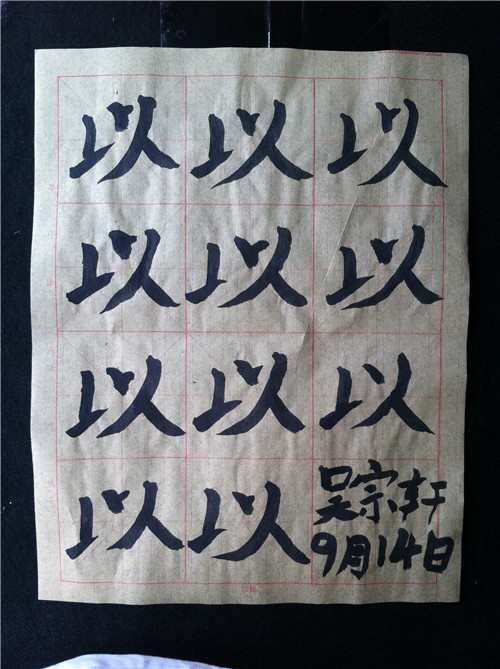 以以以
以以以
以以以
以以吴宗轩
9月14日